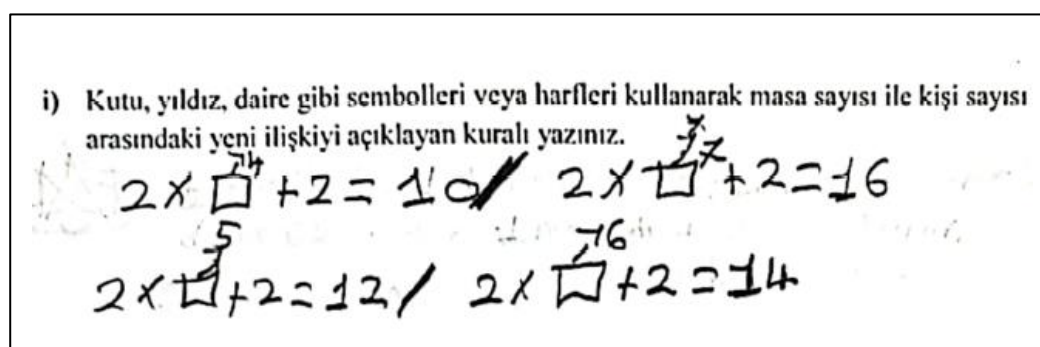 i) Kutu, yıldız, daire gibi sembolleri veya harfleri kullanarak masa sayısı ile kişi sayısı
arasındaki yeni ilişkiyi açıklayan kuralı yazınız.
4 7
2 x □ + 2 = 10 / 2 x □ + 2 = 16
5 6
2 x □ + 2 = 12 / 2 x □ + 2 = 14